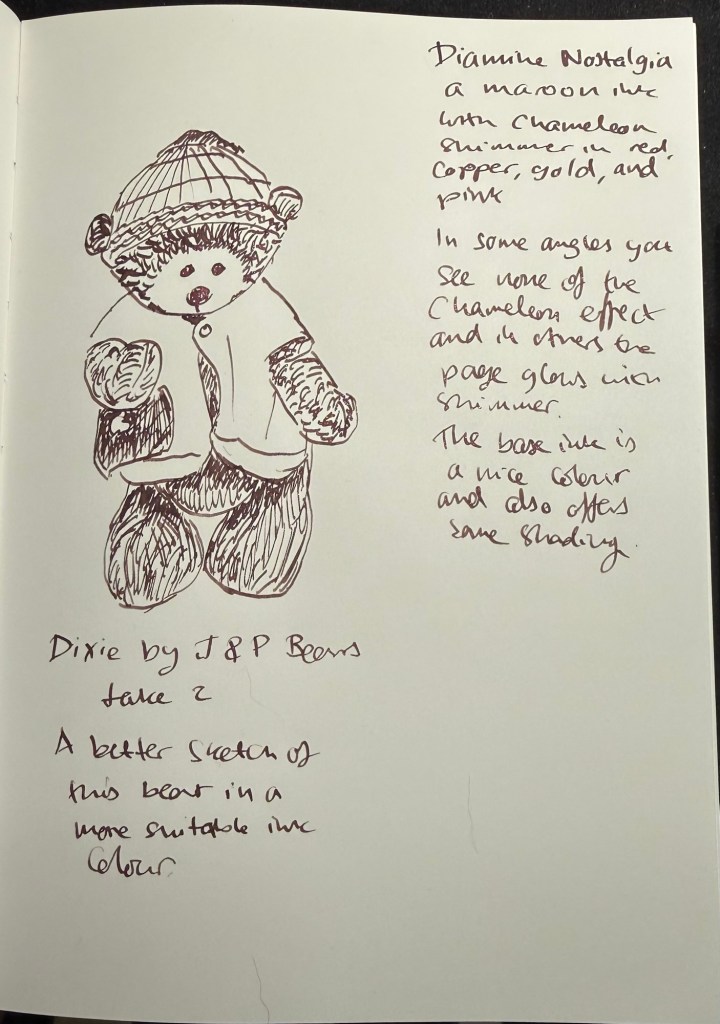 Diamine Nostalgia
a maroon ink
with Chameleon
shimmer in red,
copper, gold, and
pink
In some angles you
see none of the
Chameleon effect
and in others the
page glows with
shimmer.
The base ink is
a nice colour
and also offers
some shading.
Dixie by J & P Bears
take 2
A better sketch of
this bear in a
more suitable ink
colour.